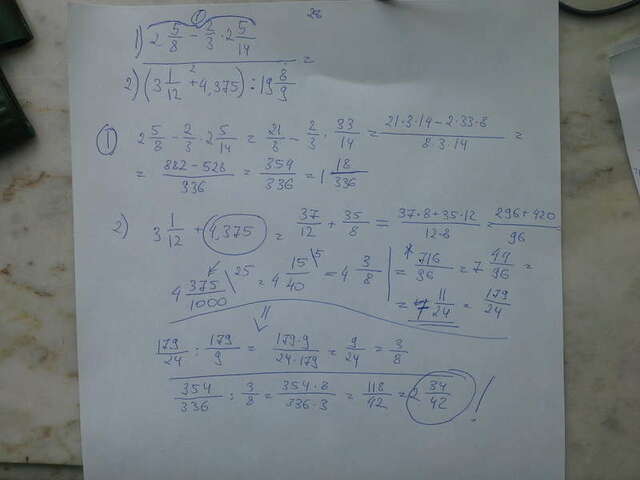 ① 28
1) 2 5/8 - 2/3 · 2 5/14
2) (3 1/12 + 4,375) : 19 8/9 =
① 2 5/8 - 2/3 · 2 5/14 = 21/8 - 2/3 · 33/14 = 21·3·14 - 2·33·8 / 8·3·14 =
= 882 - 528 / 336 = 354/336 = 1 18/336
2) 3 1/12 + 4,375 = 37/12 + 35/8 = 37·8 + 35·12 / 12·8 = 296 + 420 / 96
4 375/1000 \25 = 4 15/40 \5 = 4 3/8
= 716/96 = 7 44/96 =
= 7 11/24 = 179/24
179/24 : 179/9 = 179·9 / 24·179 = 9/24 = 3/8
354/336 : 3/8 = 354·8 / 336·3 = 118/42 = 2 34/42 !